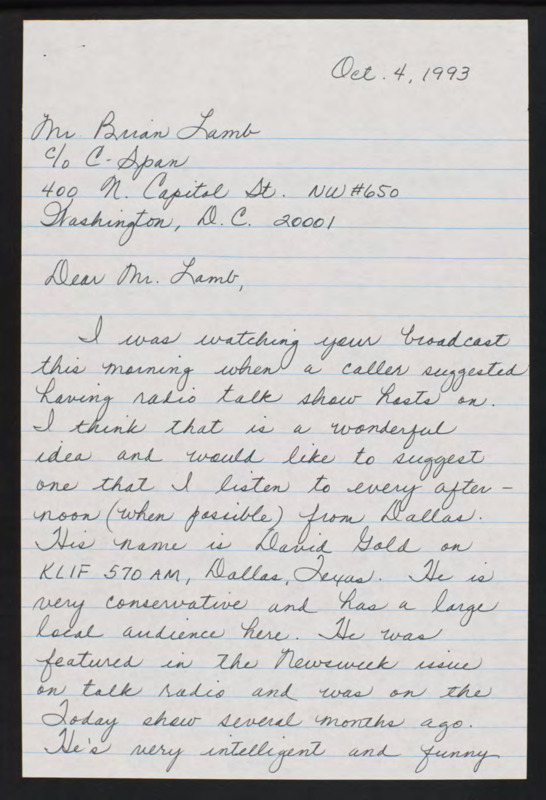 Oct. 4, 1993
Mr Brian Lamb
c/o C-Span
400 N. Capitol St. NW #650
Washington, D.C. 20001
Dear Mr. Lamb,
I was watching your broadcast
this morning when a caller suggested
having radio talk show hosts on.
I think that is a wonderful
idea and would like to suggest
one that I listen to every after-
noon (when possible) from Dallas.
His name is David Gold on
KLIF 570 AM, Dallas, Texas. He is
very conservative and has a large
local audience here. He was
featured in the Newsweek issue
on talk radio and was on the
Today show several months ago.
He's very intelligent and funny